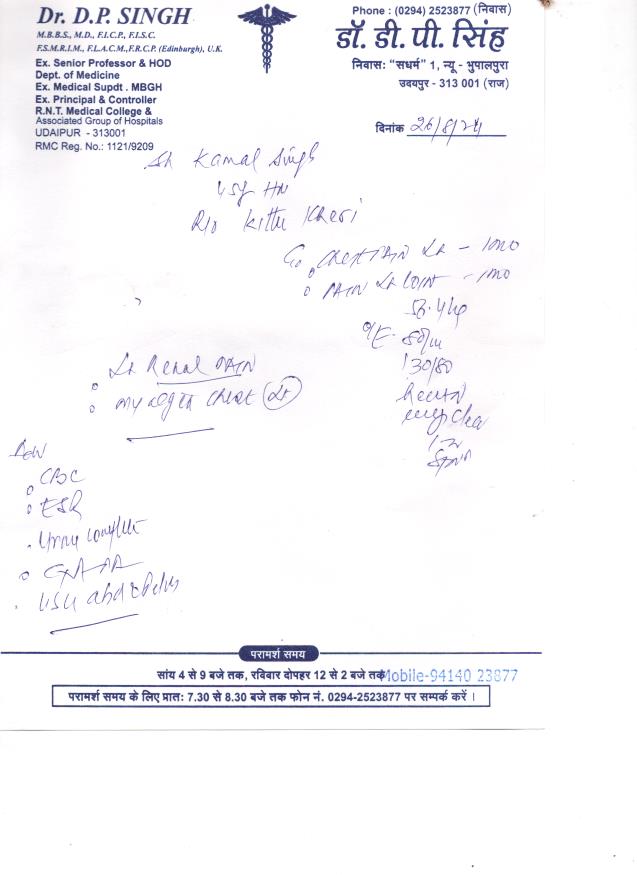 Dr. D.P. SINGH
M.B.B.S., M.D., F.I.C.P., F.I.S.C.
F.S.M.R.I.M., F.L.A.C.M., F.R.C.P. (Edinburgh), U.K.
Ex. Senior Professor & HOD
Dept. of Medicine
Ex. Medical Supdt . MBGH
Ex. Principal & Controller
R.N.T. Medical College &
Associated Group of Hospitals
UDAIPUR - 313001
RMC Reg. No.: 1121/9209
Phone : (0294) 2523877 (निवास)
डॉ. डी. पी. सिंह
निवास: "सधर्म" 1, न्यू - भुपालपुरा
उदयपुर - 313 001 (राज)
दिनांक 26/8/24
Sh Kamal Singh
R/o Kheri
CHEST PAIN Lt - 1 mo
PAIN Lt LOIN - 1mo
O/E 80/m
130/80
Lt Renal PAIN
Myalgia chest Lt
Adv
CBC
ESR
Urine complete
CXR PA
USG abd & Pelvis
परामर्श समय
सांय 4 से 9 बजे तक, रविवार दोपहर 12 से 2 बजे तक Mobile-94140 23877
परामर्श समय के लिए प्रात: 7.30 से 8.30 बजे तक फोन नं. 0294-2523877 पर सम्पर्क करें ।